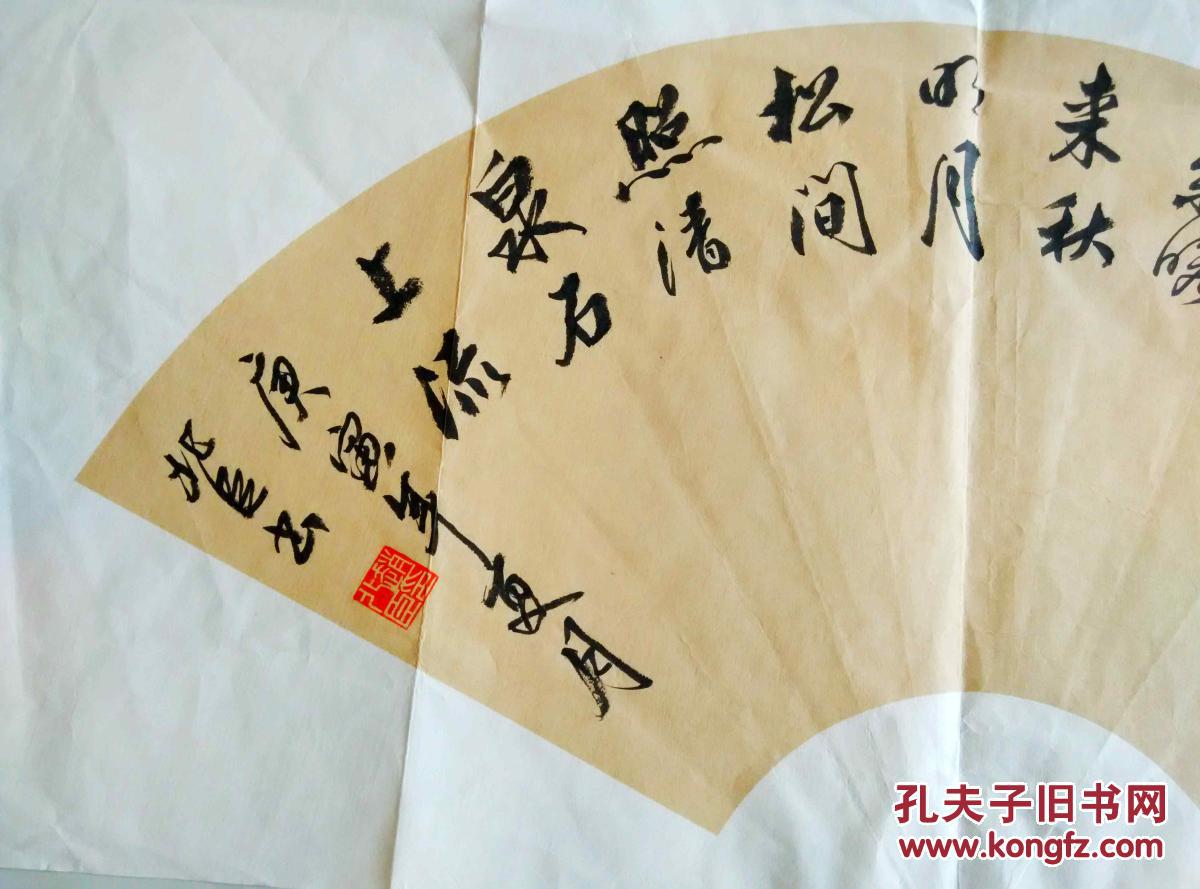 来秋
明月
松间
照清
泉石
上流
庚寅年夏月
书
孔夫子旧书网
www.kongfz.com